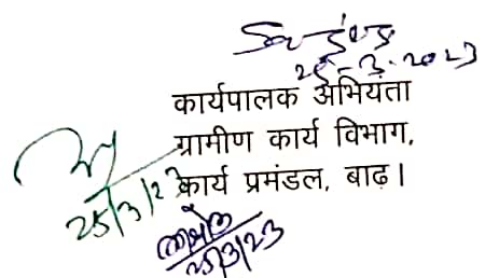 25-3-2023
कार्यपालक अभियंता
ग्रामीण कार्य विभाग,
कार्य प्रमंडल, बाढ़।
25/3/23
25/3/23